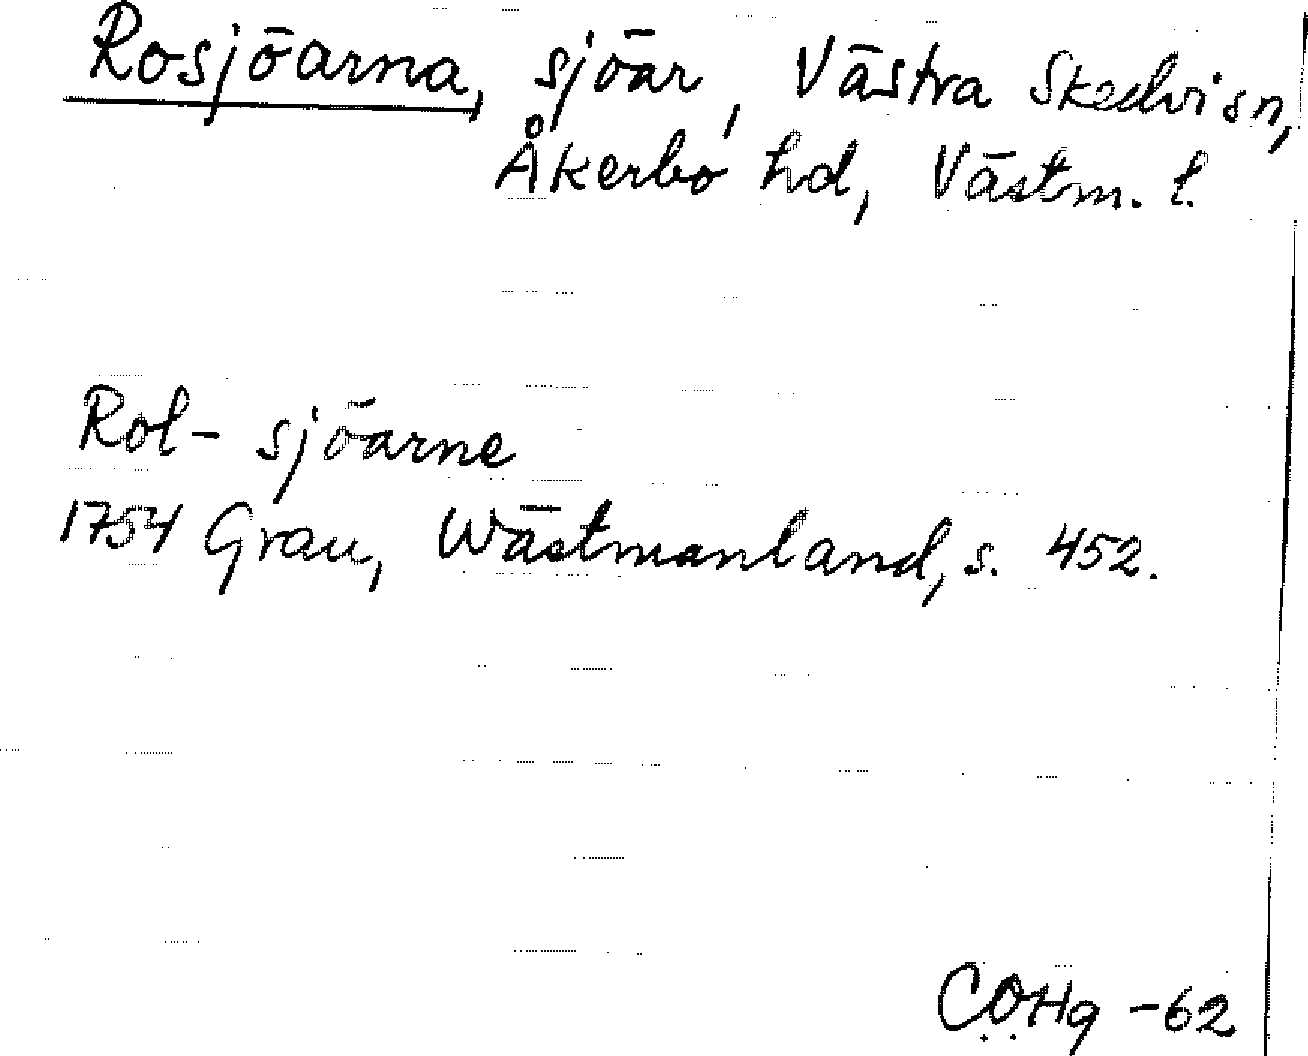 Rosjöarna, sjöar, Västra Skedvi sn,
Åkerbo hd, Västm. l.
Rol- sjöarne
1754 Grau, Wästmanland, s. 452.
COHg -62